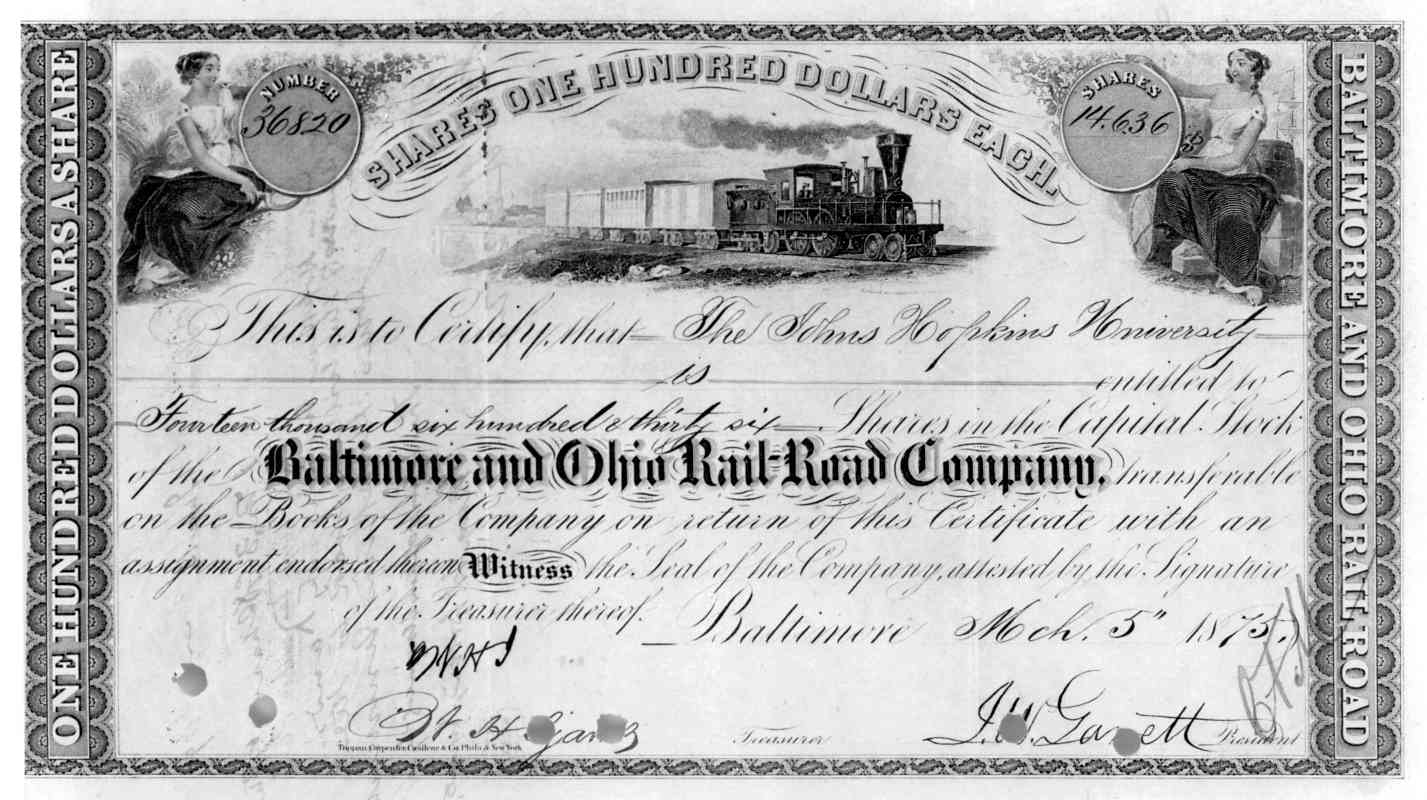 ONE HUNDRED DOLLARS A SHARE
NUMBER
36820
SHARES ONE HUNDRED DOLLARS EACH.
SHARES
14.636
BALTIMORE AND OHIO RAIL ROAD
This is to Certify, that The Johns Hopkins University
is entitled to
Fourteen thousand six hundred & thirty six Shares in the Capital Stock
of the Baltimore and Ohio Rail-Road Company, transferable
on the Books of the Company on return of this Certificate with an
assignment endorsed thereon Witness the Seal of the Company, attested by the Signature
of the Treasurer thereof. Baltimore Mch. 5" 1875.
W. H. Treasurer J. W. Garrett President
Toppan, Carpenter, Casilear & Co. Phila. & New York